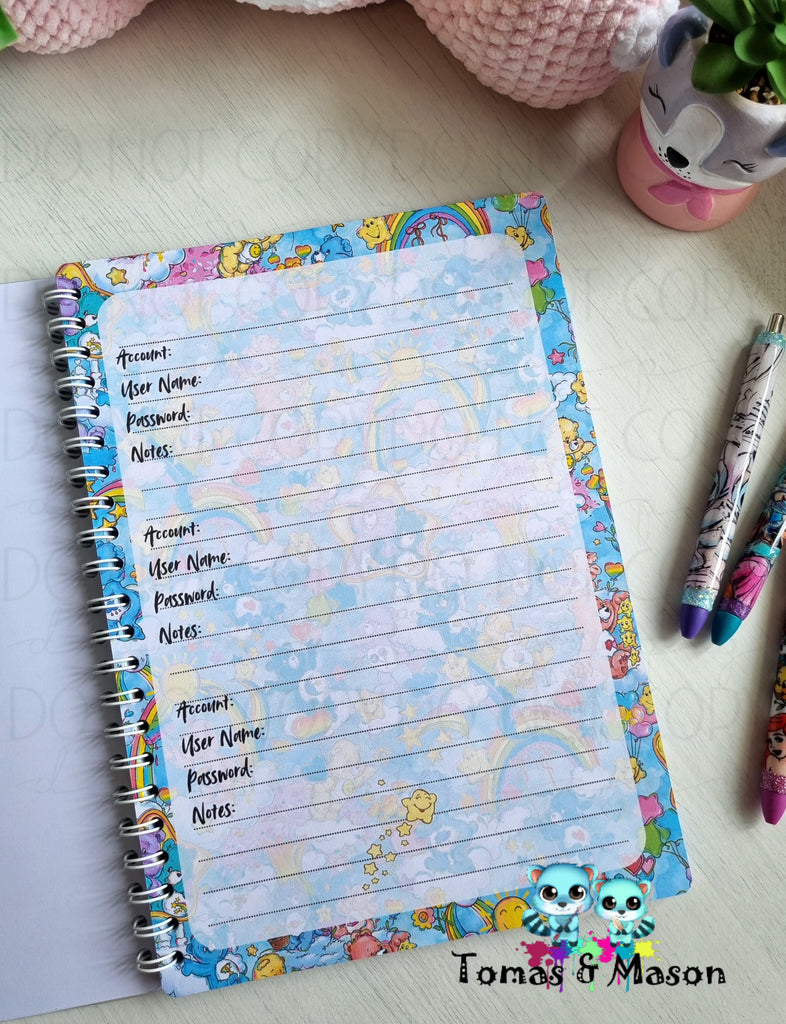 DO NOT COPY DO NOT COPY
Account:
User Name:
Password:
Notes:
Account:
User Name:
Password:
Notes:
Account:
User Name:
Password:
Notes:
Tomas & Mason